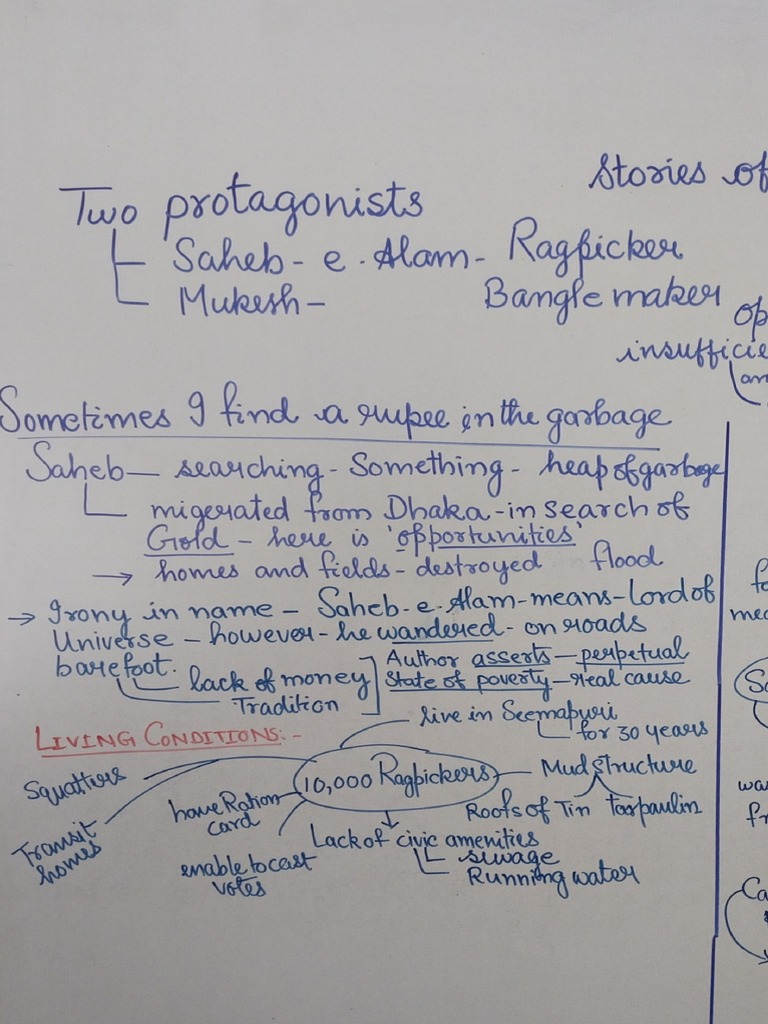 Stories of
Two protagonists
Saheb-e-Alam- Ragpicker
Mukesh- Bangle maker
insufficie
Sometimes I find a rupee in the garbage
Saheb— searching - Something - heap of garbage
migerated from Dhaka - in search of
Gold - here is 'opportunities'
→ homes and fields - destroyed flood
→ Irony in name - Saheb-e-Alam-means-Lord of
Universe - however - he wandered - on roads
barefoot.
lack of money
Tradition
Author asserts — perpetual
State of poverty — real cause
LIVING CONDITIONS:-
live in Seemapuri
for 30 years
10,000 Ragpickers
Mud structure
Roofs of Tin tarpaulin
Squattirs
Transit
homes
have Ration
card
enable to cast
votes
Lack of civic amenities
sewage
Running water